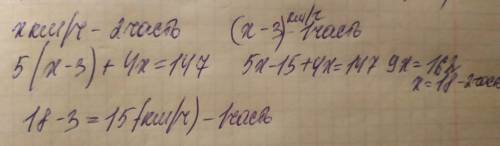 х км/ч - 2 часть (х - 3) км/ч - 1 часть
5(х - 3) + 4х = 147 5х - 15 + 4х = 147 9х = 162
х = 18 - 2 часть
18 - 3 = 15 (км/ч) - 1 часть